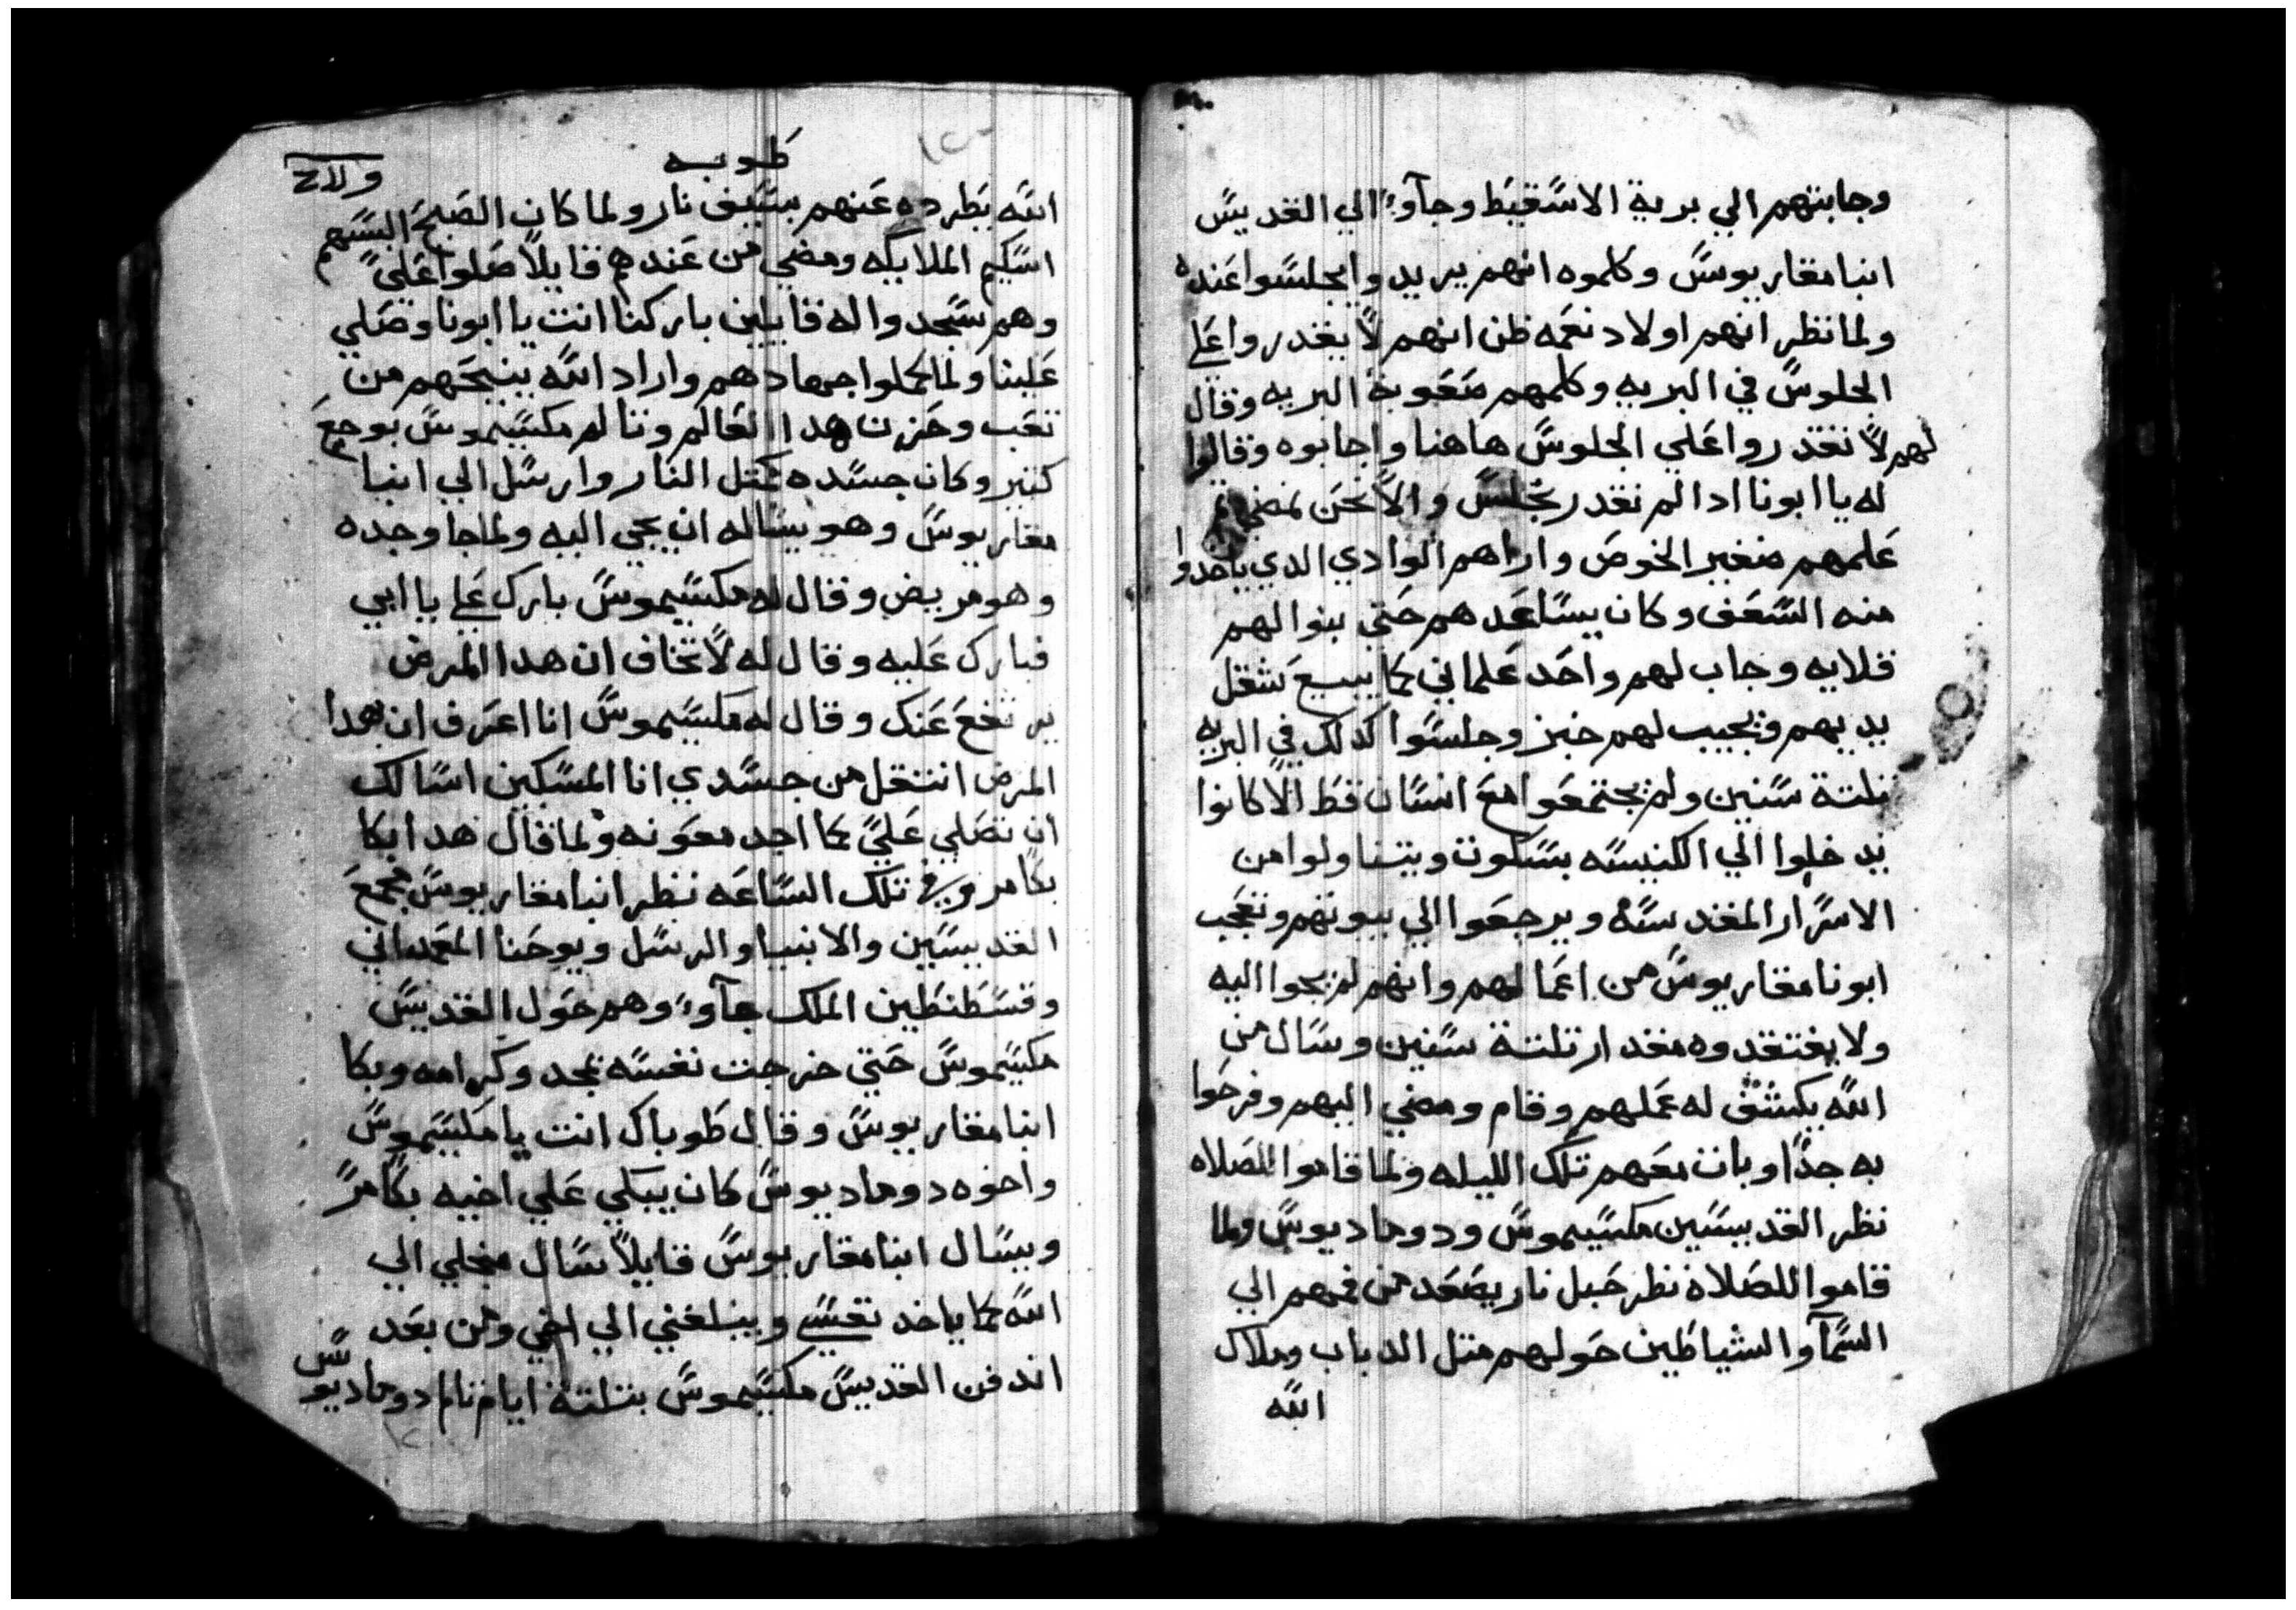 وجابتهم الي برية الاسقيط وجآوا الي القديس
انبا مقاريوس وكلموه انهم يريدوا يجلسوا عنده
ولما نظر انهم اولاد نعمه ظن انهم لا يقدروا علي
الجلوس في البريه وكلمهم صعوبة البريه وقال
لهم لا تقدروا علي الجلوس هاهنا واجابوه وقالوا
له يا ابونا ادا لم نقدر نجلس والا نحن نمضي ثم
علمهم ضفير الخوص واراهم الوادي الدي ياخدوا
منه السعف وكان يساعدهم حتي بنوا لهم
قلايه وجاب لهم واحد علماني كما يبيع شغل
يديهم ويجيب لهم خبز وجلسوا كدلك في البريه
تلتة سنين ولم يجتمعوا مع انسان قط الا كانوا
يدخلوا الي الكنيسه بسكوت ويتناولوا من
الاسرار المقدسه ويرجعوا الي بيوتهم وتعجب
ابونا مقاريوس من اعمالهم وانهم لم يجوا اليه
ولا يفتقدوه مقدار تلتة سنين وسال من
الله يكشف له عملهم وقام ومضي اليهم وفرحوا
به جدا وبات معهم تلك الليله ولما قاموا للصلاه
نظر القديسين مكسيموس ودوماديوس ولما
قاموا للصلاة نظر حبل نار يصعد من فمهم الي
السمآ والشياطين حولهم متل الدباب وملاك
الله
طوبه
الله يطرده عنهم بسيف نار ولما كان الصبح البسهم
اسكيم الملايكه ومضي من عندهم قايلا صلوا علي
وهم سجدوا له قايلين باركنا انت يا ابونا وصلي
علينا ولما كملوا جهادهم واراد الله ينيحهم من
تعب وحزن هدا العالم وتالم مكسيموس بوجع
كتير وكان جسده كمتل النار وارسل الي انبا
مقاريوس وهو يساله ان يجي اليه ولما جا وجده
وهو مريض وقال له مكسيموس بارك علي يا ابي
فبارك عليه وقال له لا تخاف ان هدا المرض
يرتفع عنك وقال له مكسيموس انا اعرف ان بهدا
المرض انتقل من جسدي انا المسكين اسالك
ان تصلي علي كما اجد معونه ولما قال هدا بكا
بكا مر وفي تلك الساعه نظر انبا مقاريوس مجمع
القديسين والانبيا والرسل ويوحنا المعمداني
وقسطنطين الملك جآوا وهم حول القديس
مكسيموس حتي خرجت نفسه بمجد وكرامه وبكا
انبا مقاريوس وقال طوباك انت يا مكسيموس
واخوه دوماديوس كان يبكي علي اخيه بكا مر
ويسال انبا مقاريوس قايلا سال مجلي الي
الله كما ياخد نفسي ويبلغني الي اخي ومن بعد
اندفن القديس مكسيموس بتلتة ايام تالم دوماديوس